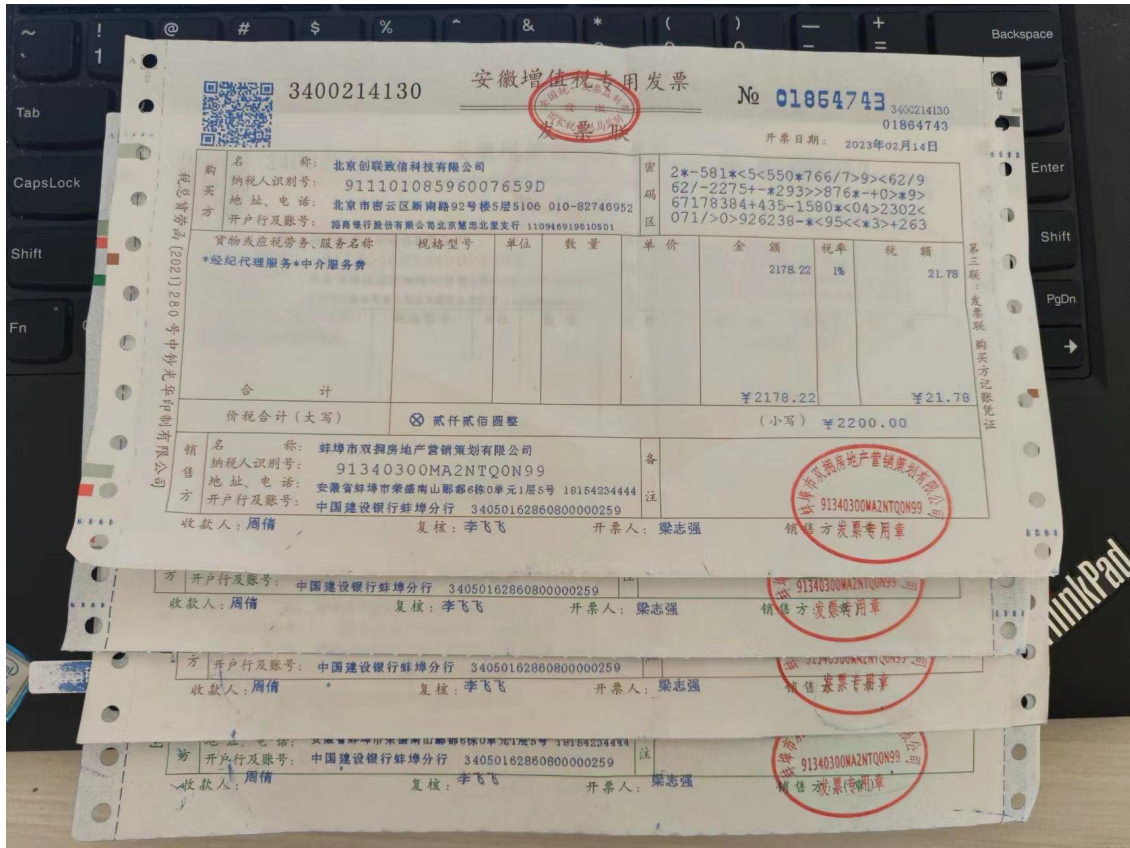 ~ ! @ # $ % ^ & * ( ) — + Backspace
` 1 - =
Tab
CapsLock
Enter
Shift
Shift
Fn
PgDn
ThinkPad
3400214130
安徽增值税专用发票
发票联
№ 01864743
3400214130
01864743
开票日期: 2023年02月14日
税总货劳函[2021]280号中钞光华印制有限公司
购买方
名 称: 北京创联致信科技有限公司
纳税人识别号: 91110108596007659D
地 址、电 话: 北京市密云区新南路92号楼5层5106 010-82746952
开户行及账号: 招商银行股份有限公司北京慧忠北里支行 110946919610501
密码区
2*-581*<5<550*766/7>9><62/9
62/-2275+-*293>>876*-+0>*9>
67178384+435-1580*<04>2302<
071/>0>926238-*<95<<*3>+263
货物或应税劳务、服务名称 规格型号 单位 数量 单价 金额 税率 税额
*经纪代理服务*中介服务费 2178.22 1% 21.78
合 计 ¥2178.22 ¥21.78
价税合计(大写) ⊗ 贰仟贰佰圆整 (小写) ¥2200.00
第三联:发票联 购买方记账凭证
销售方
名 称: 蚌埠市双拥房地产营销策划有限公司
纳税人识别号: 91340300MA2NTQ0N99
地 址、电 话: 安徽省蚌埠市荣盛南山郦都6栋0单元1层5号 18154234444
开户行及账号: 中国建设银行蚌埠分行 34050162860800000259
备注
收款人: 周倩 复核: 李飞飞 开票人: 梁志强 销售方
蚌埠市双拥房地产营销策划有限公司
91340300MA2NTQ0N99
发票专用章
方 开户行及账号: 中国建设银行蚌埠分行 34050162860800000259
收款人: 周倩 复核: 李飞飞 开票人: 梁志强 销售方:
91340300MA2NTQ0N99
发票专用章
方 开户行及账号: 中国建设银行蚌埠分行 34050162860800000259
收款人: 周倩 复核: 李飞飞 开票人: 梁志强 销售
91340300MA2NTQ0N99
发票专用章
地 址、电 话: 安徽省蚌埠市荣盛南山郦都6栋0单元1层5号 18154234444
方 开户行及账号: 中国建设银行蚌埠分行 34050162860800000259
注
收款人: 周倩 复核: 李飞飞 开票人: 梁志强 销售方:(章)
91340300MA2NTQ0N99
发票专用章